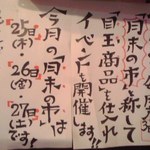 「月末の市」と称して
目玉商品を仕入れ
イベントを開催します!!
今月の「月末の市」は
25日(木)・
26日(金)
27日(土)です!